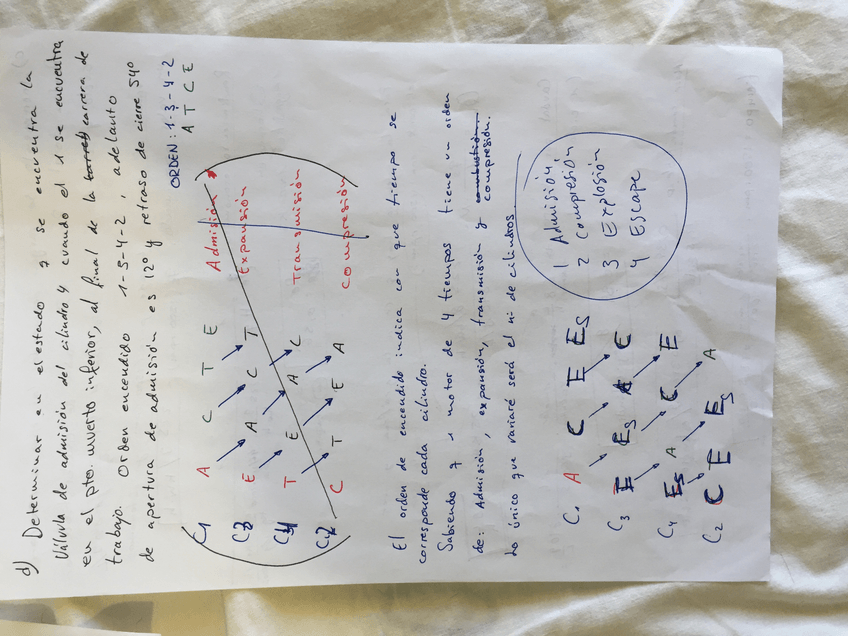 d) Determinar en el estado q se encuentra la
Válvula de admisión del cilindro 4 cuando el 1 se encuentra
en el pto. muerto inferior, al final de la carrera de
trabajo. Orden encendido 1-3-4-2, adelanto
de apertura de admisión es 12º y retraso de cierre 54º
ORDEN: 1-3-4-2
A T C E
C1 A C T E Admisión
C3 E A C T Expansión
C4 T E A C Transmisión
C2 C T E A Compresión
El orden de encendido indica con que tiempo se
corresponde cada cilindro.
Sabiendo q 1 motor de 4 tiempos tiene un orden
de: Admisión, expansión, transmisión y combustión compresión.
Lo único que variará será el nº de cilindros
C1 A C E Es
C3 E Es A C
C4 Es A C E
C2 C E Es A
1 Admisión
2 Compresión
3 Explosión
4 Escape